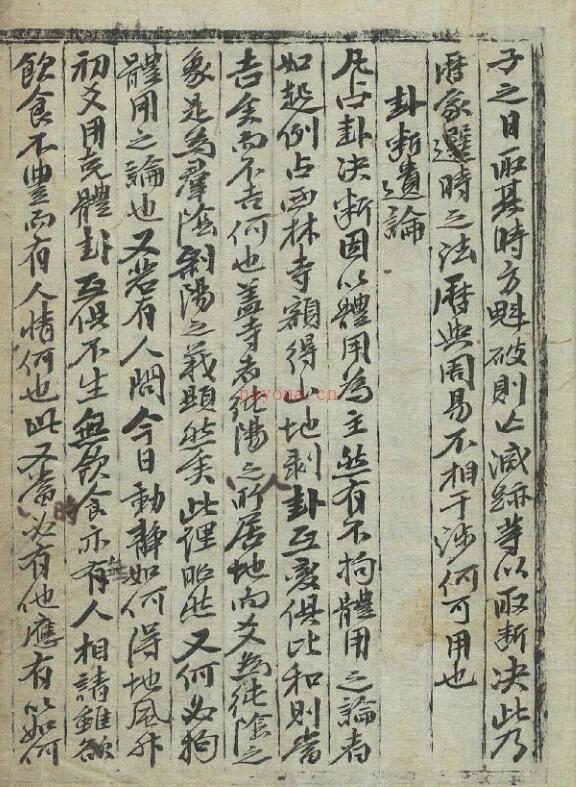 子之日取其時方魁破則亡滅跡等以取斷决此乃
曆家選時之法曆與周易不相干涉何可用也
卦斷遺論
凡占卦决斷固以體用為主然有不拘體用之論者
如起例占西林寺額得山地剥卦互變俱比和則當
吉矣而不吉何也盖寺者純陽人之所居地而爻為純陰之
象是為羣陰剝陽之義顯然矣此理昭然又何必拘
體用之論也又若有人問今日動静如何得地風升
初爻用克體卦互俱不生無飲食亦有人相請雖飲
飲食不豊而有人情何也此又當時必有他應有以如何
nayona.cn